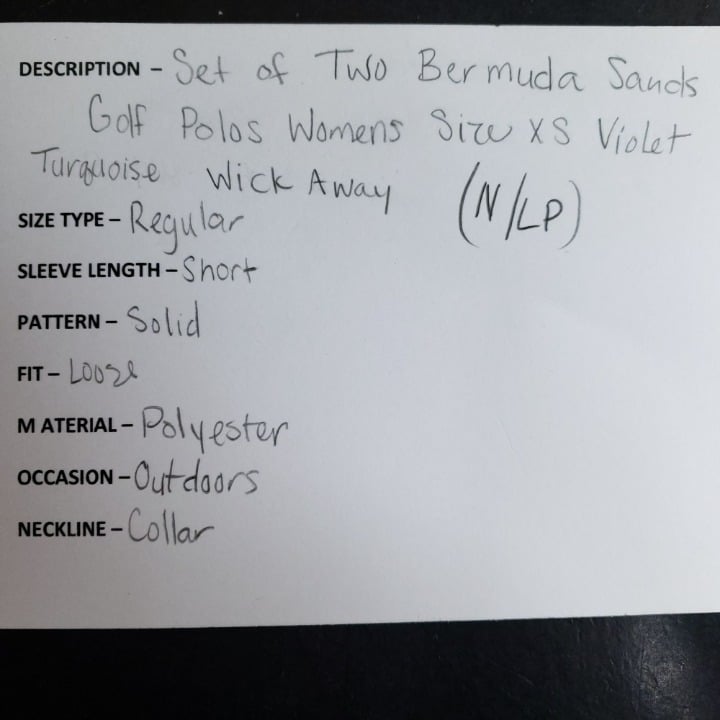 DESCRIPTION - Set of Two Bermuda Sands
Golf Polos Womens Size XS Violet
Turquoise Wick Away (N/LP)
SIZE TYPE - Regular
SLEEVE LENGTH - Short
PATTERN - Solid
FIT - Loose
MATERIAL - Polyester
OCCASION - Outdoors
NECKLINE - Collar